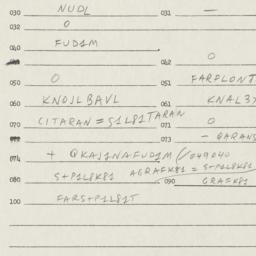 030 NUDL 031 —
032 0
040 FUDIM
042 0
050 0 051 FARPLONT
060 KNOJLBAVL 061 KNAL3
070 CITARAN = S1L81TARAN 071 0
073 - GARANS
074 + QKAJ1NAFUDIM (/049040
080 S+P1L8K81 AGRAFK81 = S+P1L8K81
090 GRAFK81
100 FARS+P1L81T